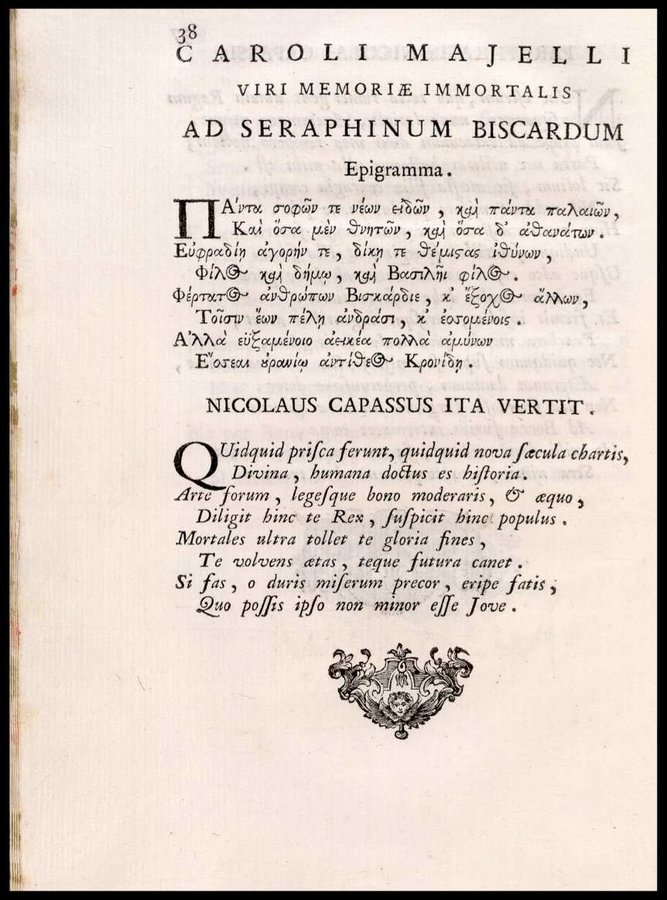 38
CAROLI MAJELLI
VIRI MEMORIÆ IMMORTALIS
AD SERAPHINUM BISCARDUM
Epigramma.
ΠΑντα σοφῶν τε νέων εἰδῶν, καὶ πάντα παλαιῶν,
Καὶ ὅσα μὲν θνητῶν, καὶ ὅσα δ' ἀθανάτων.
Εὐφραδίη ἀγορήν τε, δίκῃ τε θέμιςας ἰθύνων,
Φίλος καὶ δήμῳ, καὶ Βασιλῆϊ φίλος.
Φέρτατος ἀνθρώπων Βισκάρδιε, κ' ἔξοχος ἄλλων,
Τοῖσιν ἔων πέλῃ ἀνδράσι, κ' ἐσομένοις.
Αλλὰ εὐξαμένοιο ἀεικέα πολλὰ ἀμύνων
Εσσεαι οὐρανίῳ ἀντίθεος Κρονίδῃ.
NICOLAUS CAPASSUS ITA VERTIT.
QUidquid priſca ferunt, quidquid nova ſæcula chartis,
Divina, humana doctus es hiſtoria.
Arte forum, legeſque bono moderaris, & æquo,
Diligit hinc te Rex, ſuſpicit hinc populus.
Mortales ultra tollet te gloria fines,
Te volvens ætas, teque futura canet.
Si fas, o duris miſerum precor, eripe fatis,
Quo poſſis ipſo non minor eſſe Jove.